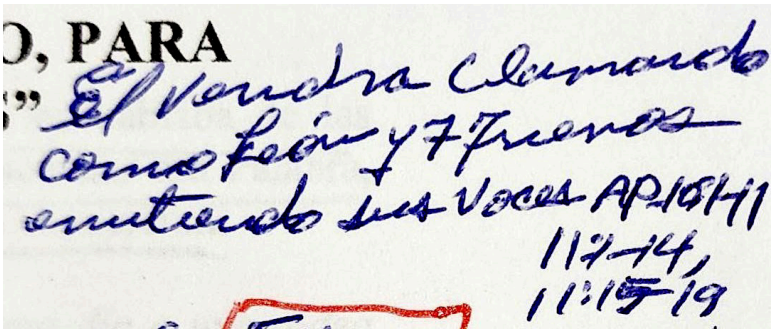 O, PARA
S”
El vendra clamando
como León y 7 Truenos
emitiendo sus voces AP.10:1-11
11:15-19